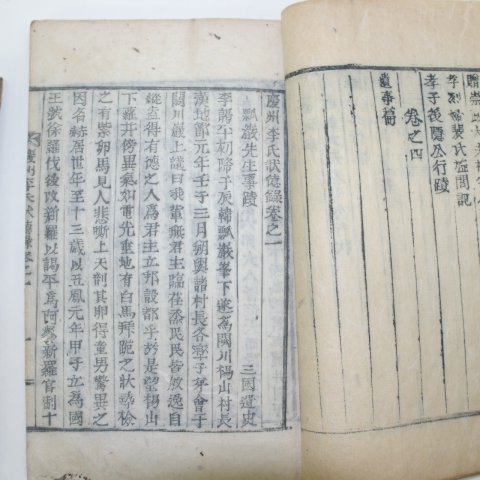 贈崇
孝列婦裴氏旌閭記
孝子後隱公行蹟
卷之四
遺事篇
慶州李氏狀德錄卷之一
瓢巖先生事蹟
三國遺史
李謁平初降于辰韓瓢巖峯下遂爲閼川楊山村長
漢地節元年壬子三月朔與諸村長各率子弟會于
閼川巖上議曰我輩無君主臨在烝民民皆放逸自
縱盍得有德之人爲君主立邦設都乎於是望楊山
下蘿井傍異氣如電光垂地有白馬拜跪之狀就檢
之有紫卵馬見人悲嘶上天剖其卵得童男驚異之
因名赫居世至十三歲以五鳳元年甲子立爲國
王號徐羅伐後改新羅以謁平爲阿飱新羅官制十
慶州李氏狀德錄卷之一